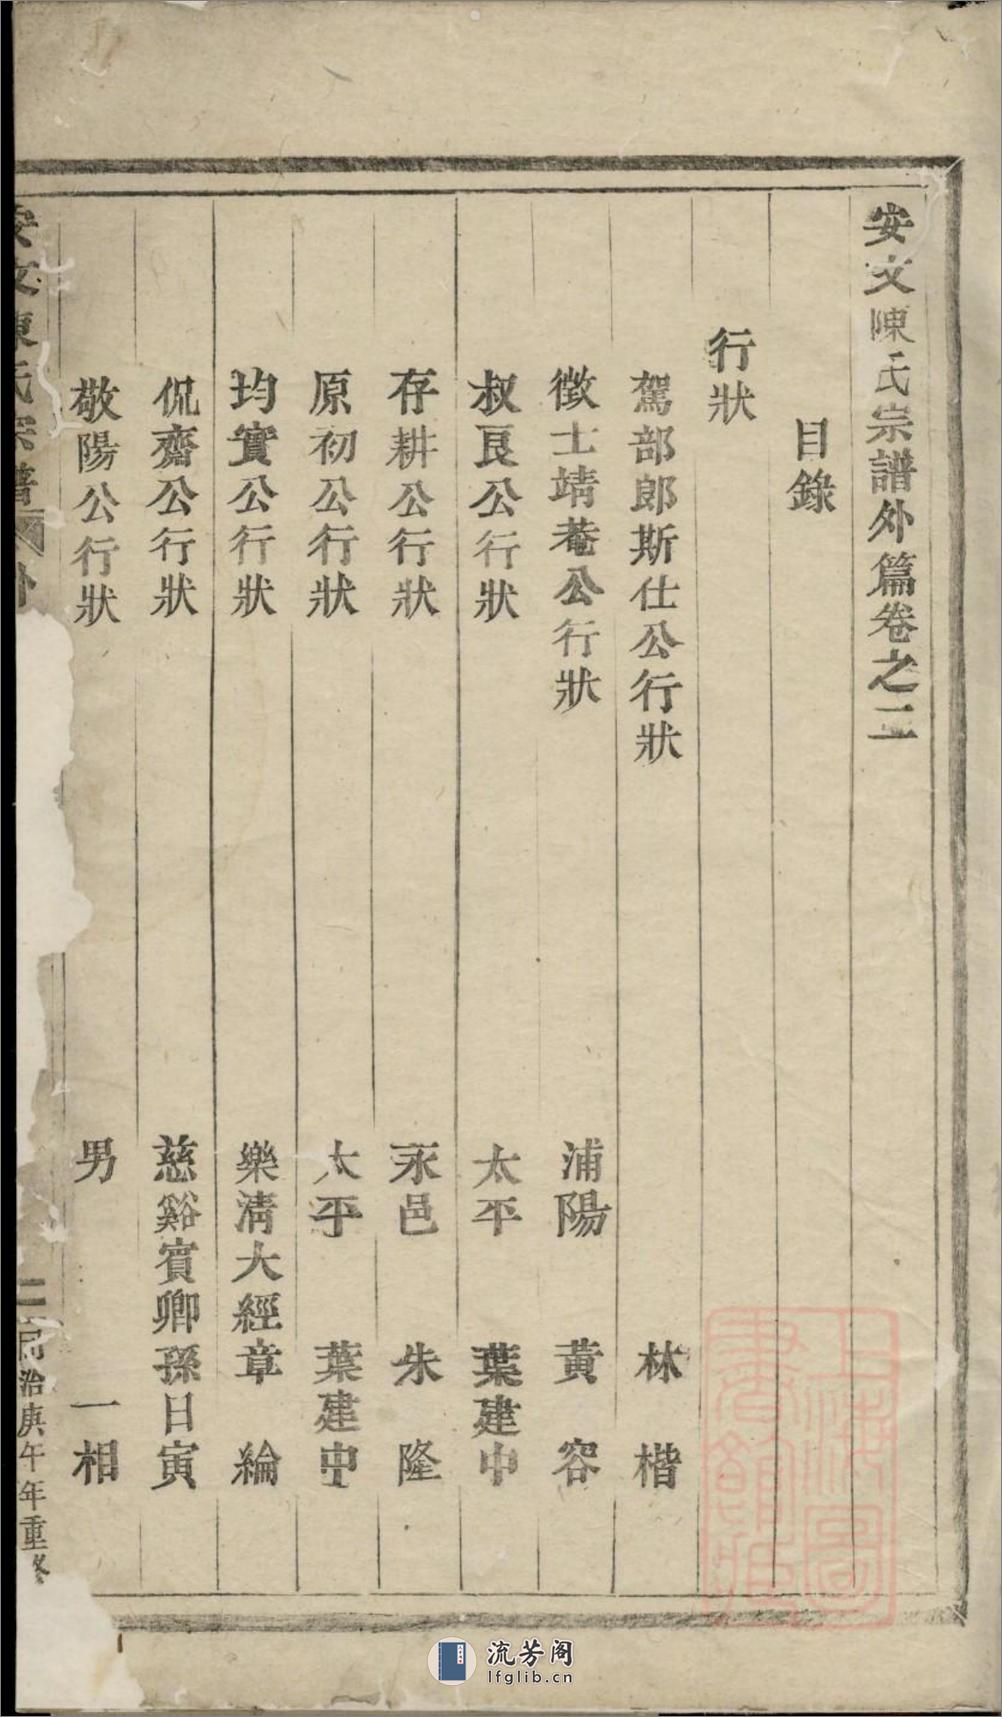 安文陳氏宗譜外篇卷之二
目錄
行狀
駕部郎斯仕公行狀 林楷
徵士靖菴公行狀 浦陽 黃容
叔良公行狀 太平 葉建中
存耕公行狀 永邑 朱隆
原初公行狀 太平 葉建中
均實公行狀 樂清大經章 綸
侃齋公行狀 慈谿賓卿孫日寅
敬陽公行狀 男 一相
安文陳氏宗譜 外
二 同治庚午年重修
上海圖書館藏
流芳阁
lfglib.cn